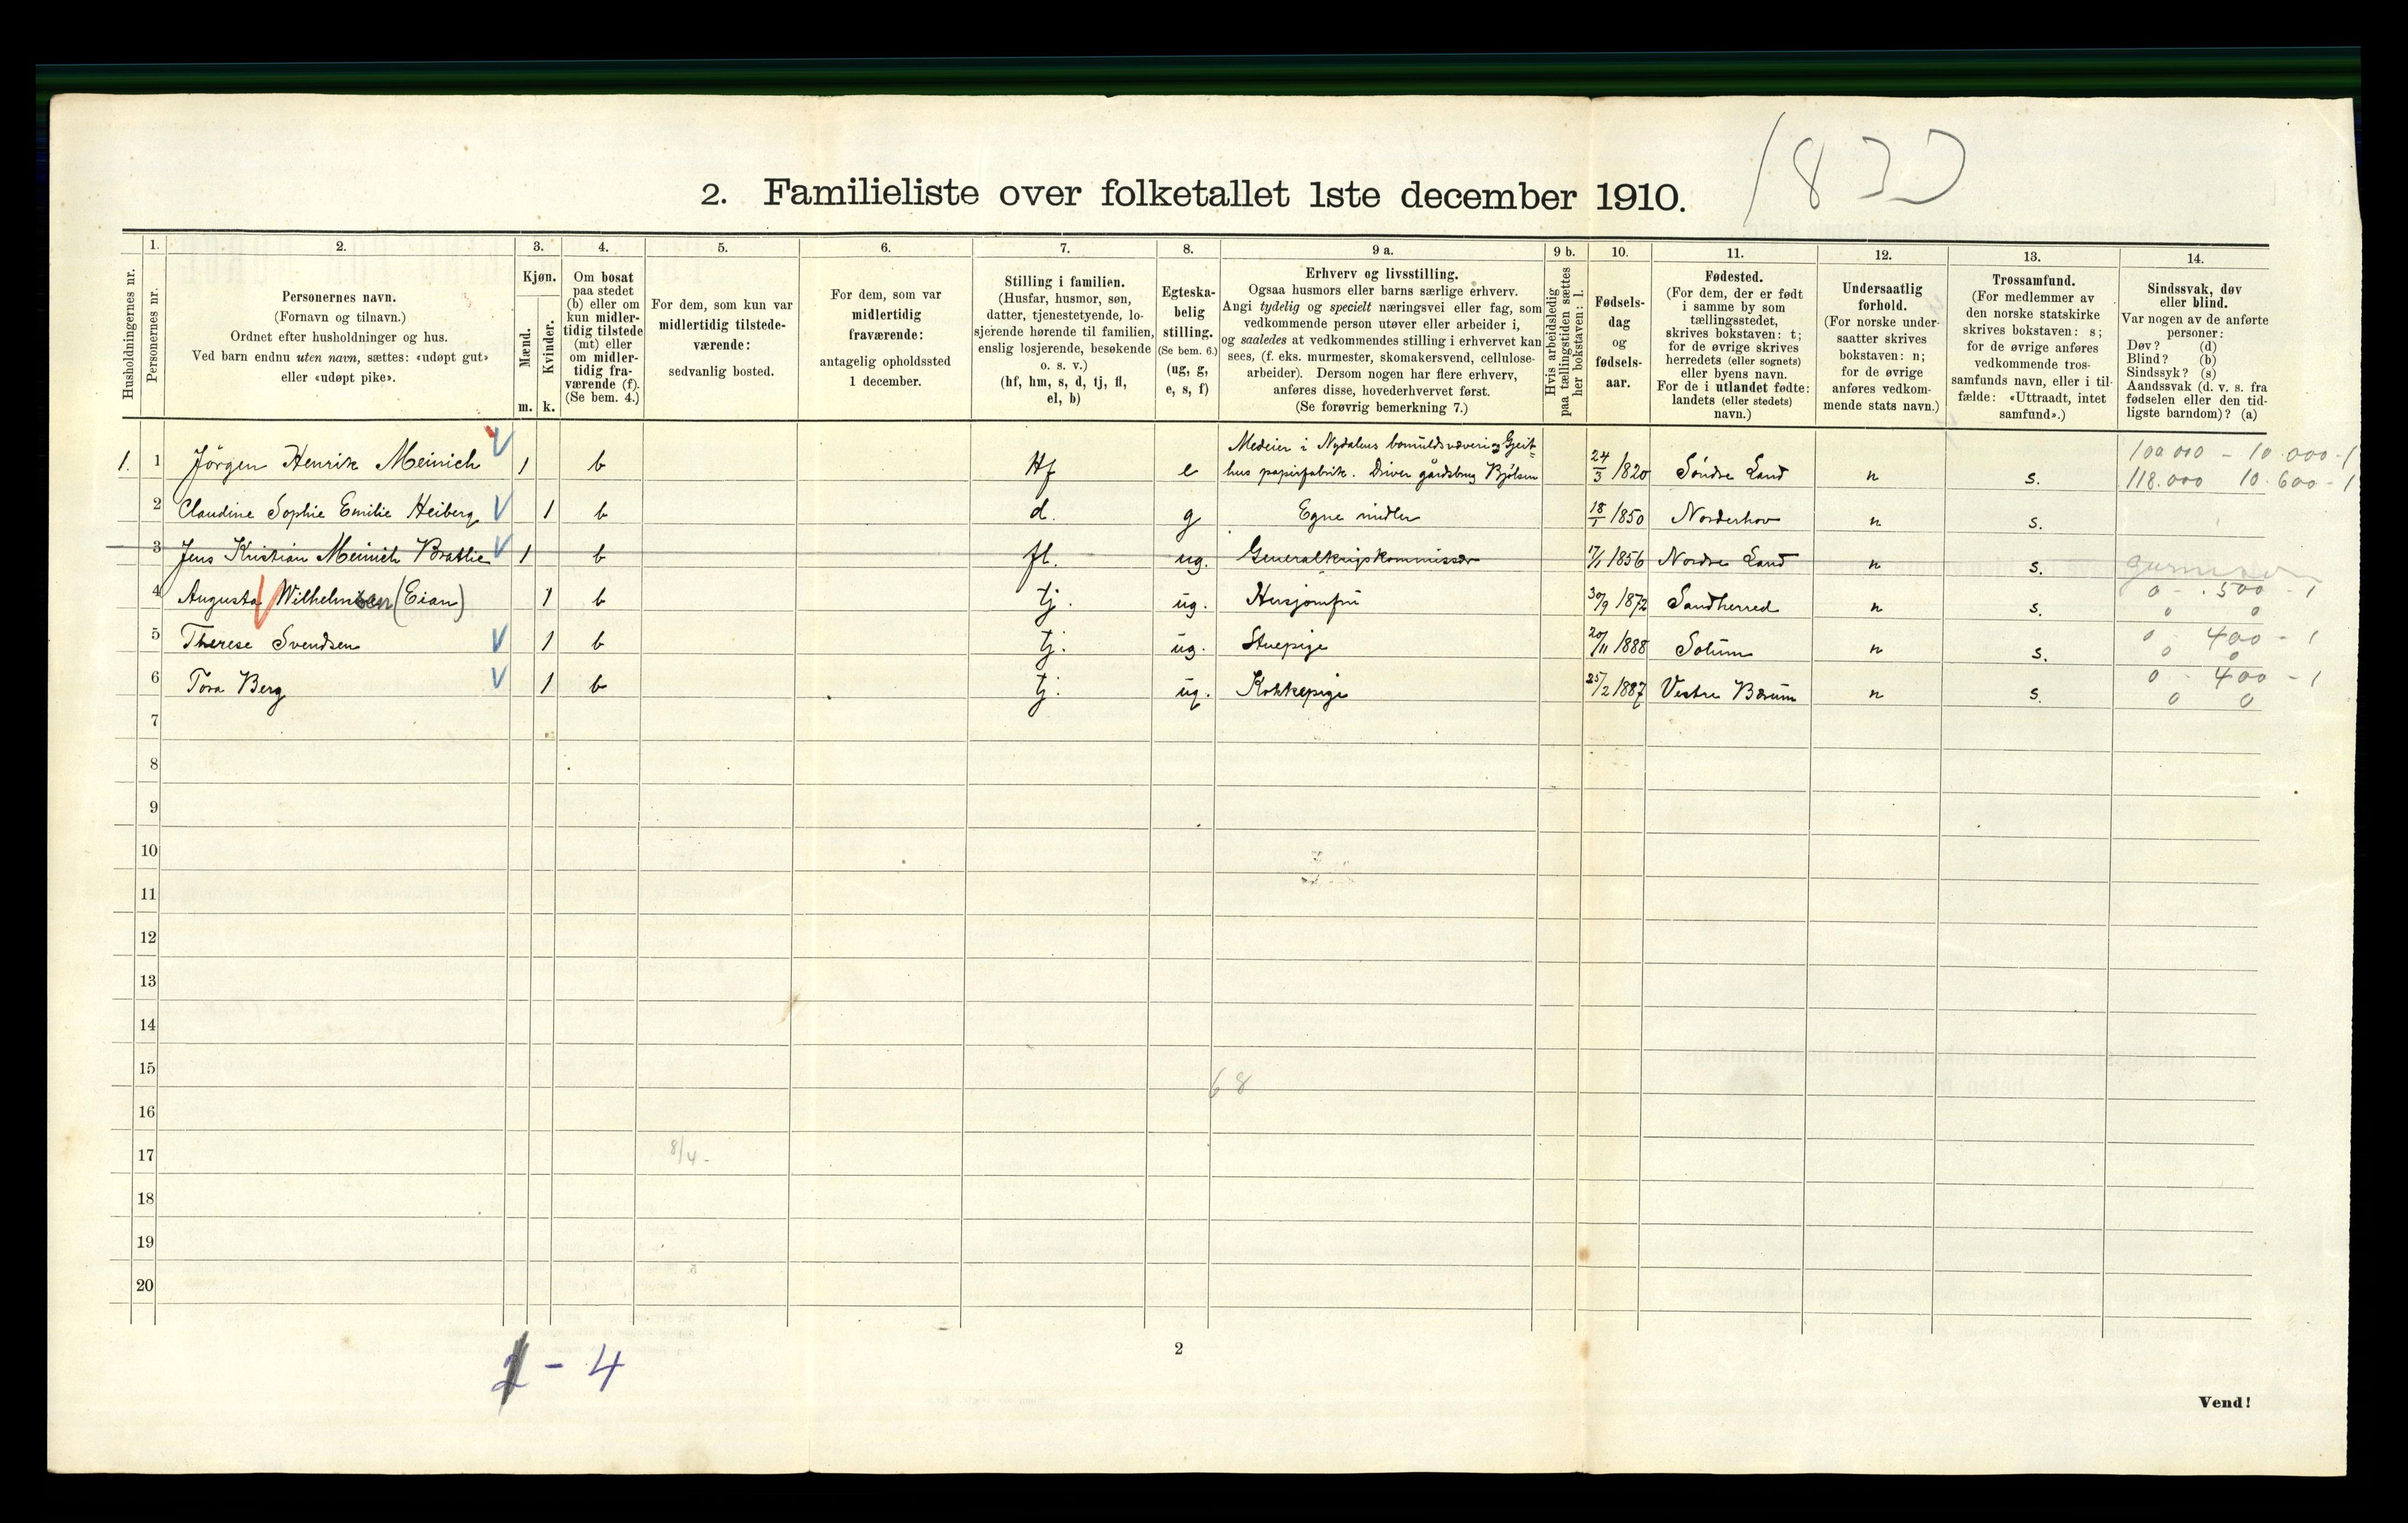 1833
2. Familieliste over folketallet 1ste december 1910.
Husholdningernes nr.
1.
Personernes nr.
2.
Personernes navn.
(Fornavn og tilnavn.)
Ordnet efter husholdninger og hus.
Ved barn endnu uten navn, sættes: «udøpt gut»
eller «udøpt pike».
3.
Kjøn.
Mænd.
Kvinder.
m. k.
4.
Om bosat
paa stedet
(b) eller om
kun midler-
tidig tilstede
(mt) eller
om midler-
tidig fra-
værende (f).
(Se bem. 4.)
5.
For dem, som kun var
midlertidig tilstede-
værende:
sedvanlig bosted.
6.
For dem, som var
midlertidig
fraværende:
antagelig opholdssted
1 december.
7.
Stilling i familien.
(Husfar, husmor, søn,
datter, tjenestetyende, lo-
sjerende hørende til familien,
enslig losjerende, besøkende
o. s. v.)
(hf, hm, s, d, tj, fl,
el, b)
8.
Egteska-
belig
stilling.
(Se bem. 6.)
(ug, g,
e, s, f)
9 a.
Erhverv og livsstilling.
Ogsaa husmors eller barns særlige erhverv.
Angi tydelig og specielt næringsvei eller fag, som
vedkommende person utøver eller arbeider i,
og saaledes at vedkommendes stilling i erhvervet kan
sees, (f. eks. murmester, skomakersvend, cellulose-
arbeider). Dersom nogen har flere erhverv,
anføres disse, hovederhvervet først.
(Se forøvrig bemerkning 7.)
9 b.
Hvis arbeidsledig
paa tællingstiden sættes
her bokstaven: l.
10.
Fødsels-
dag
og
fødsels-
aar.
11.
Fødested.
(For dem, der er født
i samme by som
tællingsstedet,
skrives bokstaven: t;
for de øvrige skrives
herredets (eller sognets)
eller byens navn.
For de i utlandet fødte:
landets (eller stedets)
navn.)
12.
Undersaatlig
forhold.
(For norske under-
saatter skrives
bokstaven: n;
for de øvrige
anføres vedkom-
mende stats navn.)
13.
Trossamfund.
(For medlemmer av
den norske statskirke
skrives bokstaven: s;
for de øvrige anføres
vedkommende tros-
samfunds navn, eller i til-
fælde: «Uttraadt, intet
samfund».)
14.
Sindssvak, døv
eller blind.
Var nogen av de anførte
personer:
Døv? (d)
Blind? (b)
Sindssyk? (s)
Aandssvak (d. v. s. fra
fødselen eller den tid-
ligste barndom)? (a)
Medeier i Nydalens bomuldsvæveri og Gjeit= 100.000 - 10.000 - 1
1. 1 Jörgen Henrik Meinich 1 b Hf e hus papirfabrik. Driver gårdsbrug Bjølsen 24/3 1820 Søndre Land n s. 118.000 10.600 - 1
2 Claudine Sophie Emilie Heiberg 1 b d. g Egne midler 18/1 1850 Norderhov n s.
3 Jens Kristian Meinich Brattlie 1 b fl. ug. Generalkrigskommissær 17/1 1856 Nordre Land n s.
4 Augusta Wilhelmsen (Eian) 1 b tj. ug. Husjomfru 30/9 1872 Sandherred n s. 0 - 500 - 1
0 0
5 Therese Svendsen 1 b tj. ug. Stuepige 20/11 1888 Solum n s. 0 400 - 1
0 0
6 Tora Berg 1 b tj. ug. Kokkepige 25/2 1887 Vestre Bærum n s. 0 - 400 - 1
0 0
7
8
9
10
11
12
13
14
15
68
16
17
8/4 -
18
19
20
- 4
2
Vend!